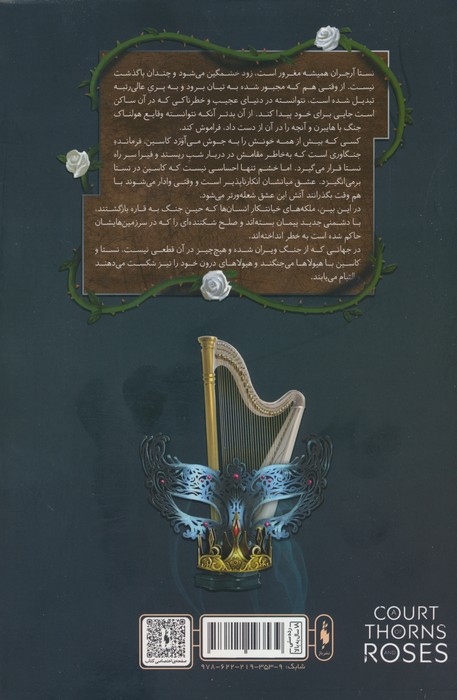 نستا آرچران همیشه مغرور است، زود خشمگین می‌شود و چندان باگذشت
نیست. از وقتی هم که مجبور شده به درون پاتیل برود و به پری عالی‌رتبه
تبدیل شده است، نتوانسته در دنیای عجیب و خطرناکی که در آن ساکن
است جایی برای خود پیدا کند. از آن بدتر آنکه نتوانسته وقایع هولناک
جنگ با هایبرن و آنچه را در آن از دست داد، فراموش کند.
کسی که بیش از همه خونش را به جوش می‌آورد کاسین، فرمانده
جنگاوری است که به‌خاطر مقامش در دربار شب ریسند و فیرا سر راه
نستا قرار می‌گیرد. اما خشم تنها احساسی نیست که کاسین در نستا
برمی‌انگیزد. عشق میانشان انکارناپذیر است و وقتی وادار می‌شوند با
هم وقت بگذرانند آتش این عشق شعله‌ورتر می‌شود.
در این بین، ملکه‌های خیانتکار انسان‌ها که حین جنگ به قاره بازگشتند،
با دشمنی جدید پیمان بسته‌اند و صلح شکننده‌ای را که در سرزمین‌هایشان
حاکم شده است به خطر انداخته‌اند.
در جهانی که از جنگ ویران شده و هیچ‌چیز در آن قطعی نیست، نستا و
کاسین با هیولاها می‌جنگند و هیولاهای درون خود را نیز شکست می‌دهند
و التیام می‌یابند.
A
COURT
OF
THORNS
AND
ROSES
رده سنی
۱۸ سال به بالا
صفحه‌ی اختصاصی کتاب
شابک: ۹-۳۵۳-۲۱۹-۶۲۲-۹۷۸